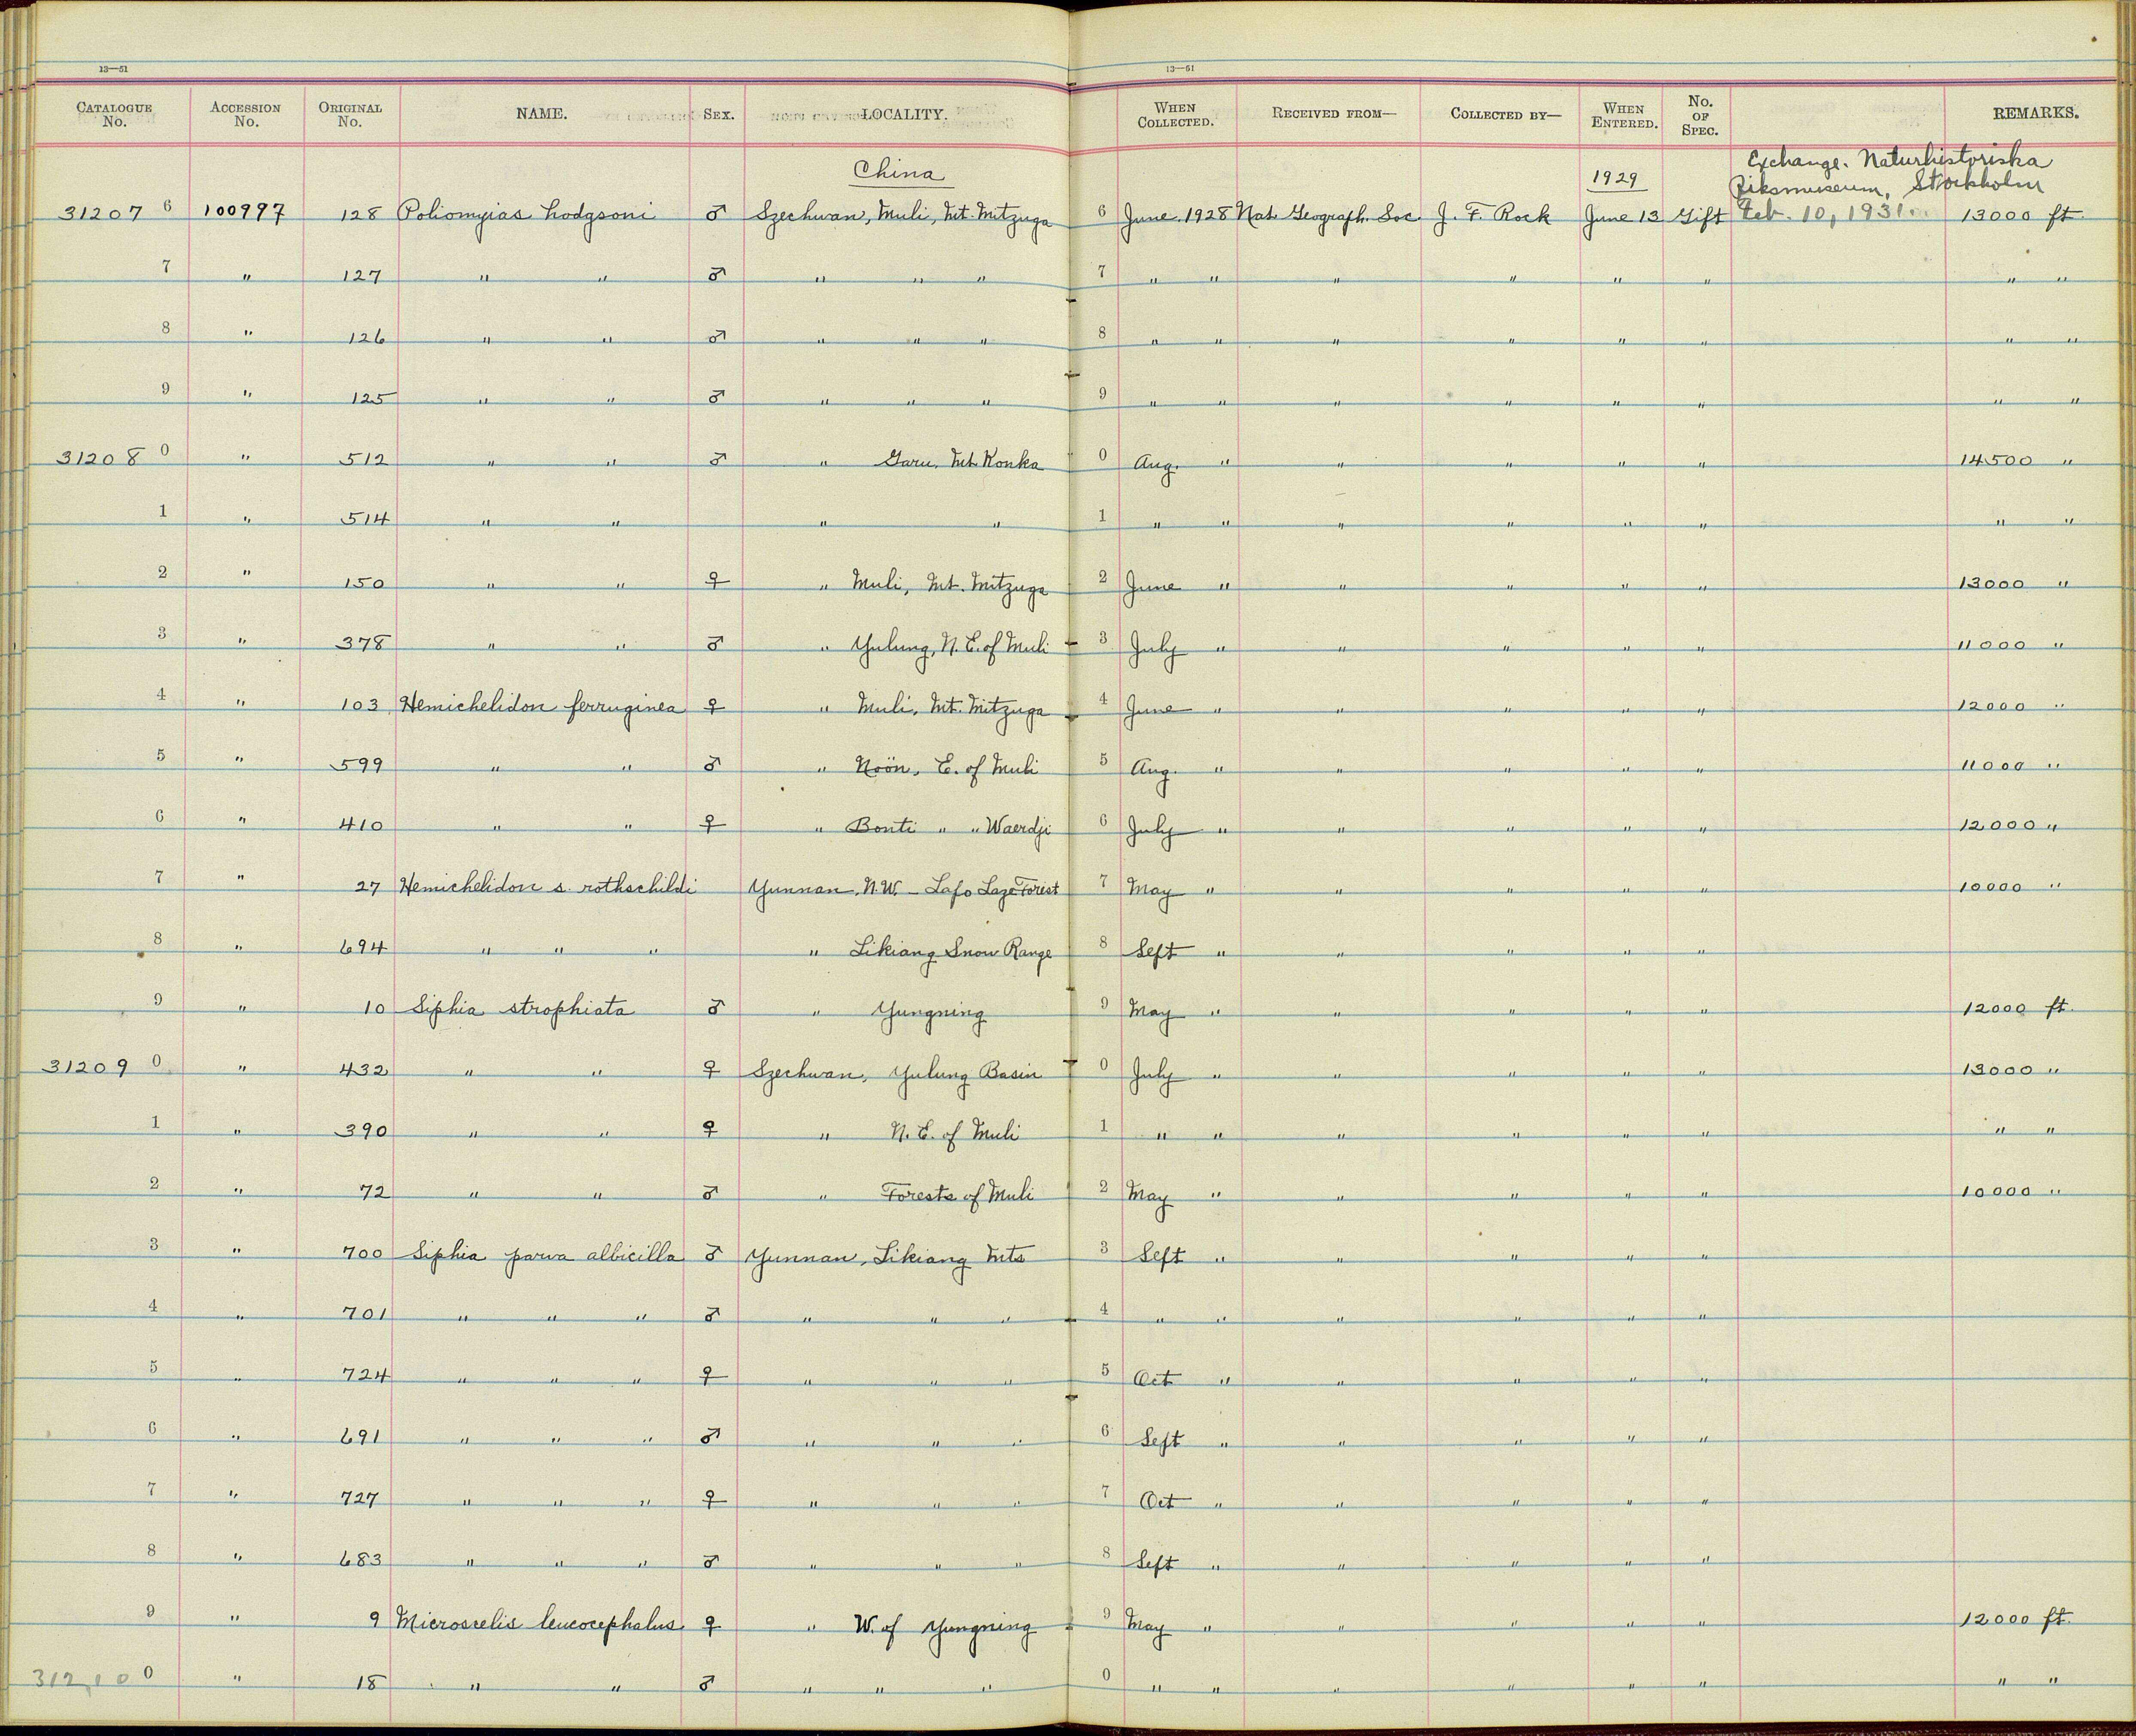 13—51 13—51
CATALOGUE No. ACCESSION No. ORIGINAL No. NAME. SEX. LOCALITY. WHEN COLLECTED. RECEIVED FROM— COLLECTED BY— WHEN ENTERED. No. OF SPEC. REMARKS.
China 1929 Exchange. Naturhistoriska
Riksmuseum, Stockholm
31207 6 100997 128 Poliomyias hodgsoni ♂ Szechwan, Muli, Mt. Mitzuga 6 June 1928 Nat Geograph. Soc J. F. Rock June 13 Gift Feb. 10, 1931. 13000 ft.
7 " 127 " " ♂ " " " 7 " " " " " " " "
8 " 126 " " ♂ " " " 8 " " " " " " " "
9 " 125 " " ♂ " " " 9 " " " " " " " "
31208 0 " 512 " " ♂ " Garu, Mt. Konka 0 Aug. " " " " " 14500 "
1 " 514 " " " " 1 " " " " " " " "
2 " 150 " " ♀ " Muli, Mt. Mitzuga 2 June " " " " " 13000 "
3 " 378 " " ♂ " Yulung, N. E. of Muli 3 July " " " " " 11000 "
4 " 103 Hemichelidon ferruginea ♀ " Muli, Mt. Mitzuga 4 June " " " " " 12000 "
5 " 599 " " ♂ " Noön, E. of Muli 5 Aug. " " " " " 11000 "
6 " 410 " " ♀ " Bonti " " Waerdji 6 July " " " " " 12000 "
7 " 27 Hemichelidon s. rothschildi Yunnan, N. W. - Lafo Laze Forest 7 May " " " " " 10000 "
8 " 694 " " " " Likiang Snow Range 8 Sept " " " " "
9 " 10 Siphia strophiata ♂ " Yungning 9 May " " " " " 12000 ft.
31209 0 " 432 " " ♀ Szechwan, Yulung Basin 0 July " " " " " 13000 "
1 " 390 " " ♀ " N. E. of Muli 1 " " " " " " " "
2 " 72 " " ♂ " Forests of Muli 2 May " " " " " 10000 "
3 " 700 Siphia parva albicilla ♂ Yunnan, Likiang Mts 3 Sept " " " " "
4 " 701 " " " ♂ " " " 4 " " " " " "
5 " 724 " " " ♀ " " " 5 Oct " " " " "
6 " 691 " " " ♂ " " " 6 Sept " " " " "
7 " 727 " " " ♀ " " " 7 Oct " " " " "
8 " 683 " " " ♂ " " " 8 Sept " " " " "
9 " 9 Microscelis leucocephalus ♀ " W. of Yungning 9 May " " " " " 12000 ft.
312,10 0 " 18 " " ♂ " " " 0 " " " " " " " "